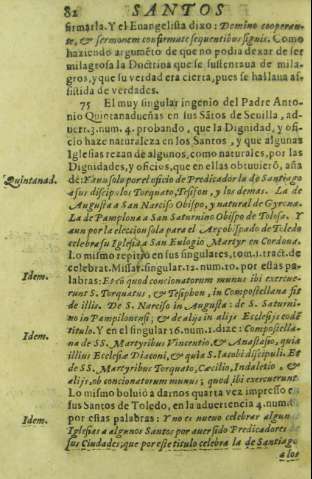 82 SANTOS
firmarla. Y el Euangelista dixo: Domino cooperan-
te, & sermonem confirmate sequentibus signis. Como
haziendo argumẽto de que no podia dexar de ser
milagrosa la Doctrina que se sustentaua de mila-
gros, y que su verdad era cierta, pues se hallaua as-
sistida de verdades.
75 El muy singular ingenio del Padre Anto-
nio Quintanadueñas en sus Sãtos de Seuilla, ad-
uert. 3. num. 4. probando, que la Dignidad, y ofi-
cio haze naturaleza en los Santos, y que algunas
Iglesias rezan de algunos, como naturales, por las
Dignidades, y oficios, que en ellas obtuuierõ, aña-
Quintanad.
de: Tan solo por el oficio de Predicador la de Santiago
a sus discipulos Torquato, Tesifon, y los demas. La de
Augusta a San Narciso Obispo, y natural de Gyrona.
La de Pamplona a San Saturnino Obispo de Tolosa. Y
aun por la eleccion sola para el Arçobispado de Toledo
celebra su Iglesia a San Eulogio Martyr en Cordoua.
Lo mismo repitiò en sus singulares, tom. 1. tract. de
celebrat. Missar. singular. 12. num. 10. por estas pa-
Idem.
labras: Et cò quod concionatorum munus ibi exercue-
runt S. Torquatus, & Tesiphon, in Compostellana sit
de illis. De S. Narciso in Augusta: de S. Saturni-
no in Pampilonensi; & de alijs in alijs Ecclesijs eodẽ
titulo. Y en el singular 16. num. 1. dize: Compostella-
Idem.
na de SS. Martyribus Vincentio, & Anastasio, quia
illius Ecclesiæ Diaconi, & quia S. Iacobi discipuli. Et
de SS. Martyribus Torquato, Cæcilio, Indaletio, &
alijs, ob concionatorum munus; quod ibi exercuerunt.
Lo mismo boluiò a darnos quarta vez impresso en
sus Santos de Toledo, en la aduertencia 4. num.
Idem.
por estas palabras: Y no es nueuo celebrar algunas
Iglesias a algunos Santos por auer sido Predicadores de
sus Ciudades; que por este titulo celebra la de Santiago
a los